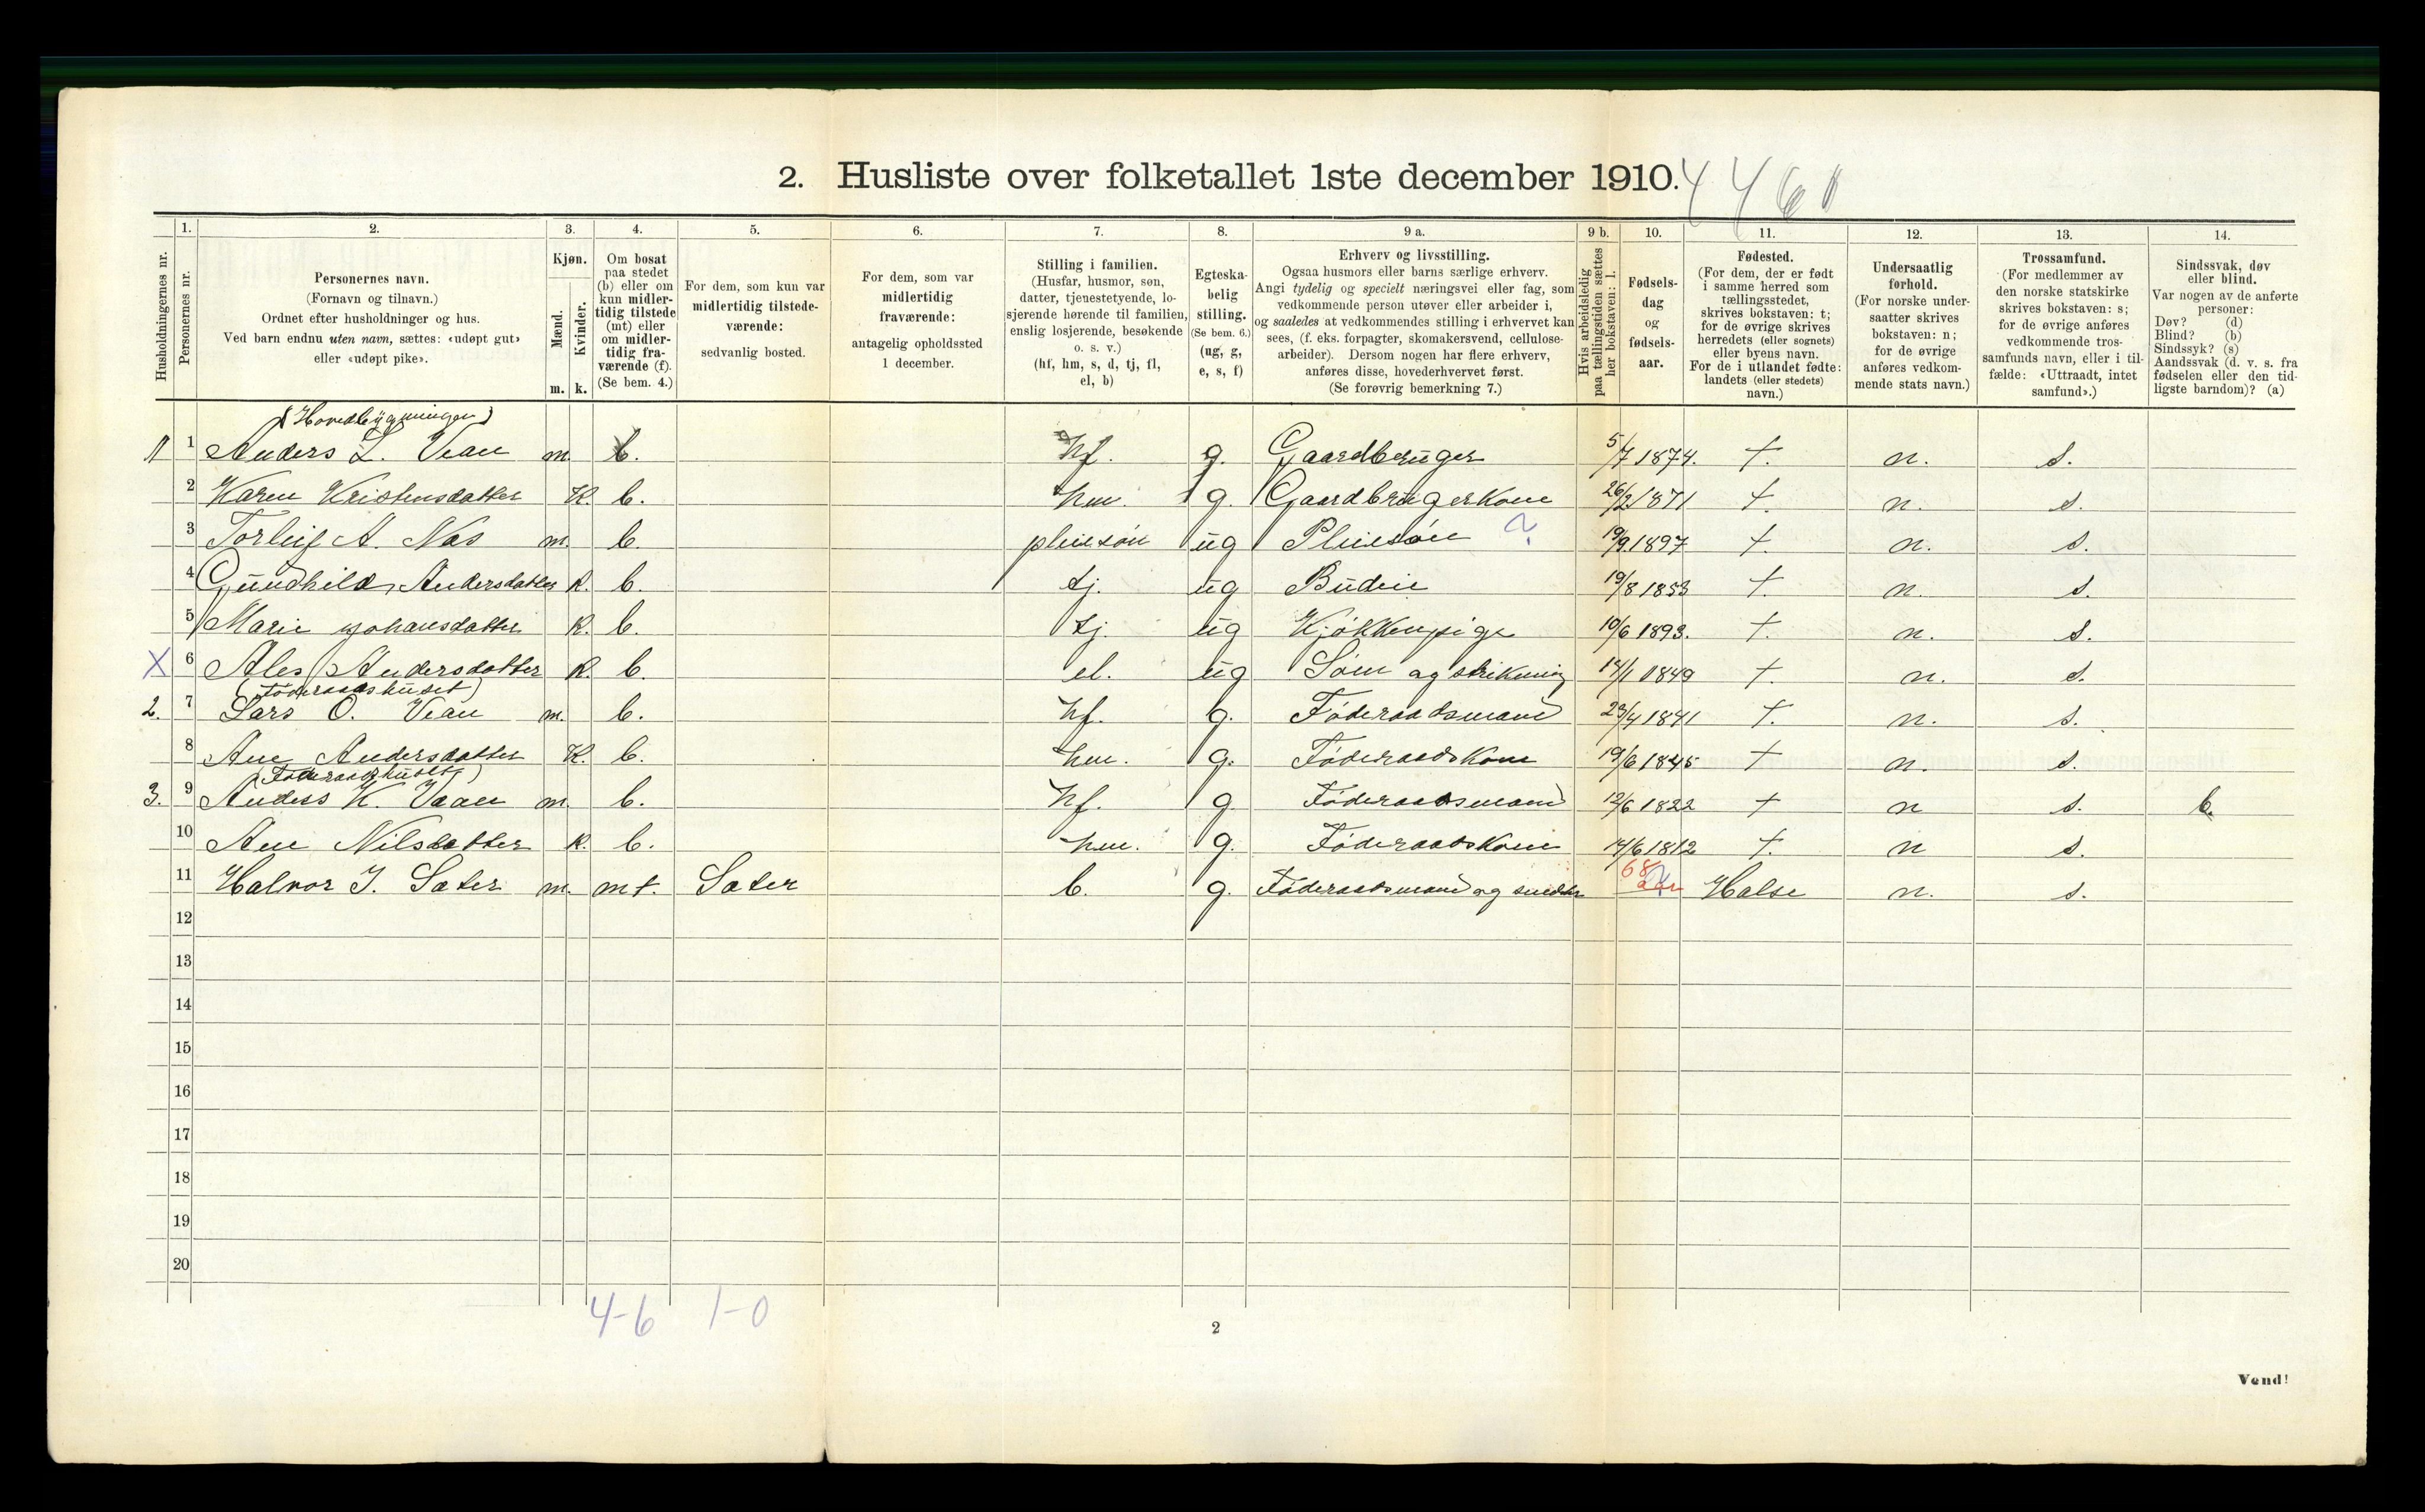 2. Husliste over folketallet 1ste december 1910. 4 4 6 1
Husholdningernes nr.
1. Personernes nr.
2. Personernes navn. (Fornavn og tilnavn.) Ordnet efter husholdninger og hus. Ved barn endnu uten navn, sættes: «udøpt gut» eller «udøpt pike».
3. Kjøn. Mænd. Kvinder. m. k.
4. Om bosat paa stedet (b) eller om kun midlertidig tilstede (mt) eller om midlertidig fraværende (f). (Se bem. 4.)
5. For dem, som kun var midlertidig tilstedeværende: sedvanlig bosted.
6. For dem, som var midlertidig fraværende: antagelig opholdssted 1 december.
7. Stilling i familien. (Husfar, husmor, søn, datter, tjenestetyende, losjerende hørende til familien, enslig losjerende, besøkende o. s. v.) (hf, hm, s, d, tj, fl, el, b)
8. Egteskabelig stilling. (Se bem. 6.) (ug, g, e, s, f)
9 a. Erhverv og livsstilling. Ogsaa husmors eller barns særlige erhverv. Angi tydelig og specielt næringsvei eller fag, som vedkommende person utøver eller arbeider i, og saaledes at vedkommendes stilling i erhvervet kan sees, (f. eks. forpagter, skomakersvend, cellulosearbeider). Dersom nogen har flere erhverv, anføres disse, hovederhvervet først. (Se forøvrig bemerkning 7.)
9 b. Hvis arbeidsledig paa tællingstiden sættes her bokstaven: l.
10. Fødselsdag og fødselsaar.
11. Fødested. (For dem, der er født i samme herred som tællingsstedet, skrives bokstaven: t; for de øvrige skrives herredets (eller sognets) eller byens navn. For de i utlandet fødte: landets (eller stedets) navn.)
12. Undersaatlig forhold. (For norske undersaatter skrives bokstaven: n; for de øvrige anføres vedkommende stats navn.)
13. Trossamfund. (For medlemmer av den norske statskirke skrives bokstaven: s; for de øvrige anføres vedkommende trossamfunds navn, eller i tilfælde: «Uttraadt, intet samfund».)
14. Sindssvak, døv eller blind. Var nogen av de anførte personer: Døv? (d) Blind? (b) Sindssyk? (s) Aandssvak (d. v. s. fra fødselen eller den tidligste barndom)? (a)
(Hovedbygningen)
1 1 Anders L. Vean m. b. hf. g. Gaardbruger 5/7 1874. t. n. s.
2 Karen Kristensdatter k. b. hm. g. Gaardbrugerkone 26/2 1871 t. n. s.
3 Torleif A. Nas m. b. pleiesön ug Pleiesön ? 19/9 1897 t. n. s.
4 Gundhild Andersdatter k. b. tj. ug Budeie 19/8 1853 t. n. s.
5 Marie Johansdatter k. b. tj. ug Kjökkenpige 10/6 1893. t. n. s.
X 6 Ales Andersdatter k. b. el. ug Söm og strikning 14/1 1849 t. n. s.
(Föderaadshuset)
2. 7 Lars O. Vean m. b. hf. g. Föderaadsmand 23/4 1841 t. n. s.
8 Ane Andersdatter k. b. hm. g. Föderaadskone 19/6 1845 t n. s.
(Föderaadshuset)
3. 9 Anders K. Vaan m. b. hf. g. Föderaadsmand 12/6 1822 t n s. b.
10 Ane Nilsdatter k. b. hm. g. Föderaadskone 14/6 1812 t. n s.
11 Halvor J. Sæter m. mt. Sæter b. g. Föderaadsmand og snedker 68 aar Halse n. s.
12
13
14
15
16
17
18
19
20
4-6 1-0
2
Vend!